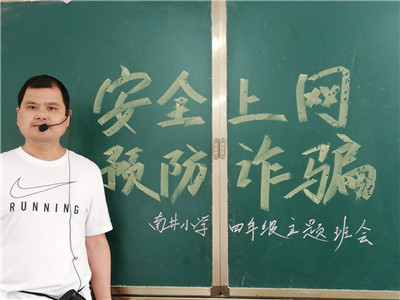 安全上网
预防诈骗
南井小学 四年级主题班会
RUNNING